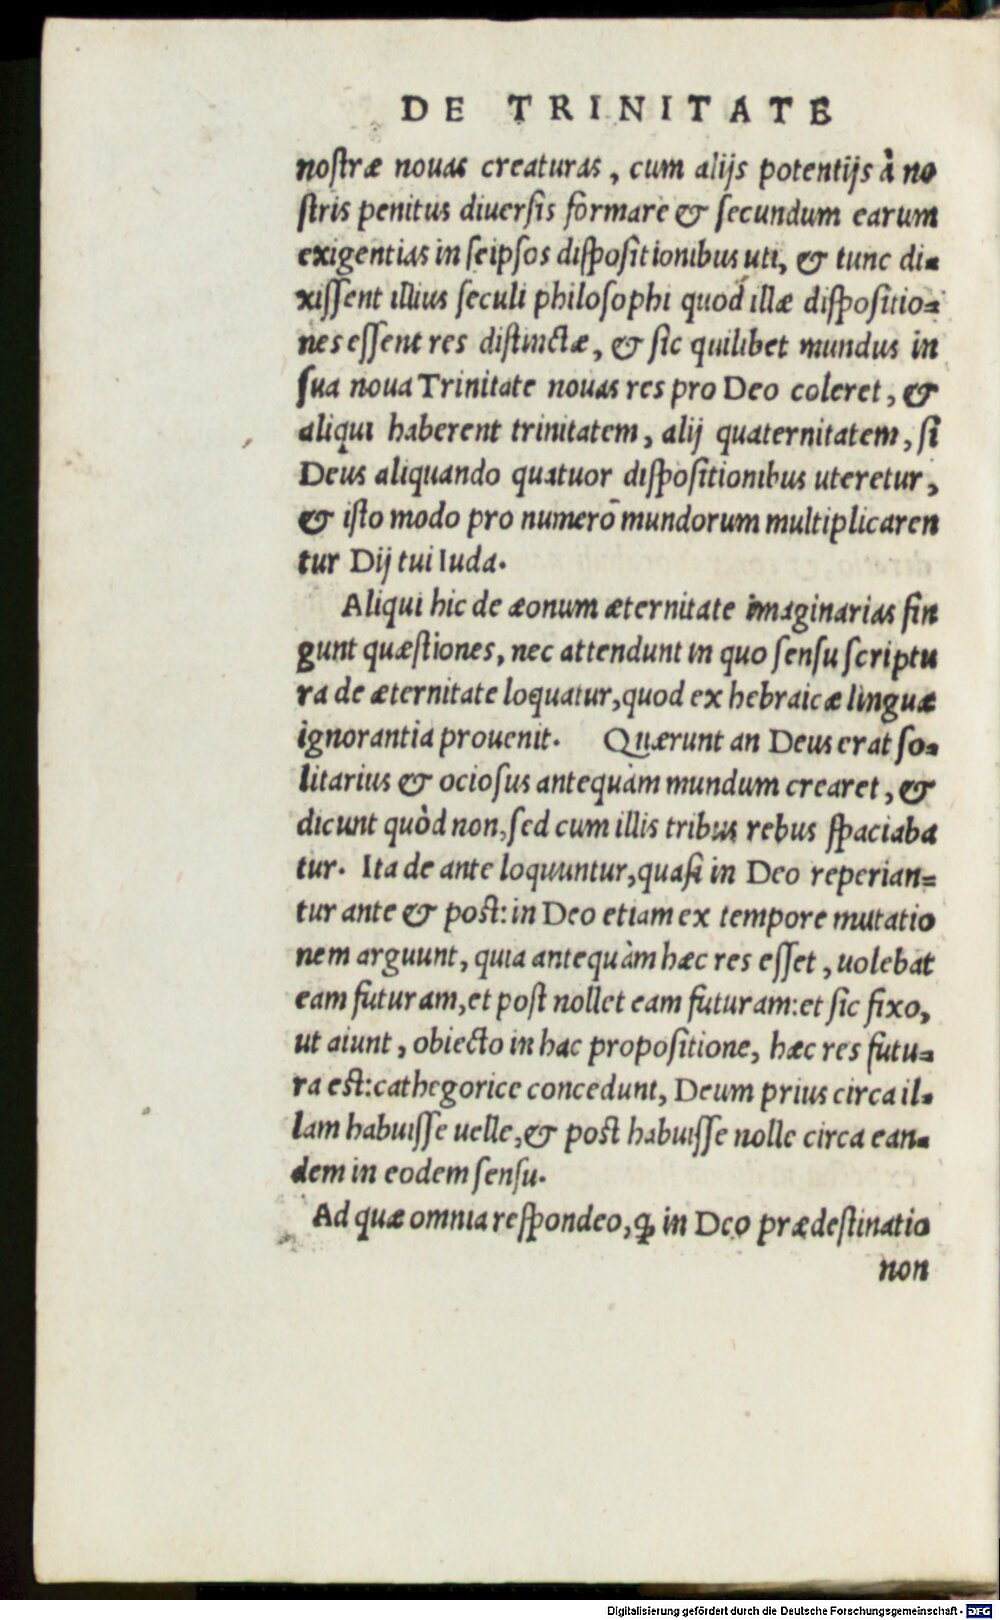 DE TRINITATE
noſtræ nouas creaturas, cum alijs potentijs à no
ſtris penitus diuerſis formare & ſecundum earum
exigentias in ſeipſos diſpoſitionibus uti, & tunc di-
xiſſent illius ſeculi philoſophi quod illæ diſpoſitio-
nes eſſent res diſtinctæ, & ſic quilibet mundus in
ſua noua Trinitate nouas res pro Deo coleret, &
aliqui haberent trinitatem, alij quaternitatem, ſi
Deus aliquando quatuor diſpoſitionibus uteretur,
& iſto modo pro numerō mundorum multiplicaren
tur Dij tui Iuda.
Aliqui hic de æonum æternitate imaginarias fin
gunt quæſtiones, nec attendunt in quo ſenſu ſcriptu
ra de æternitate loquatur, quod ex hebraicæ linguæ
ignorantia prouenit. Quærunt an Deus erat ſo-
litarius & ocioſus antequàm mundum crearet, &
dicunt quòd non, ſed cum illis tribus rebus ſpaciaba
tur. Ita de ante loquuntur, quaſi in Deo reperian-
tur ante & poſt: in Deo etiam ex tempore mutatio
nem arguunt, quia antequàm hæc res eſſet, uolebat
eam futuram, et poſt nollet eam futuram: et ſic fixo,
ut aiunt, obiecto in hac propoſitione, hæc res futu-
ra eſt: cathegorice concedunt, Deum prius circa il-
lam habuiſſe uelle, & poſt habuiſſe nolle circa ean-
dem in eodem ſenſu.
Ad quæ omnia reſpondeo, ꝙ in Deo prædeſtinatio
non
Digitalisierung gefördert durch die Deutsche Forschungsgemeinschaft - DFG